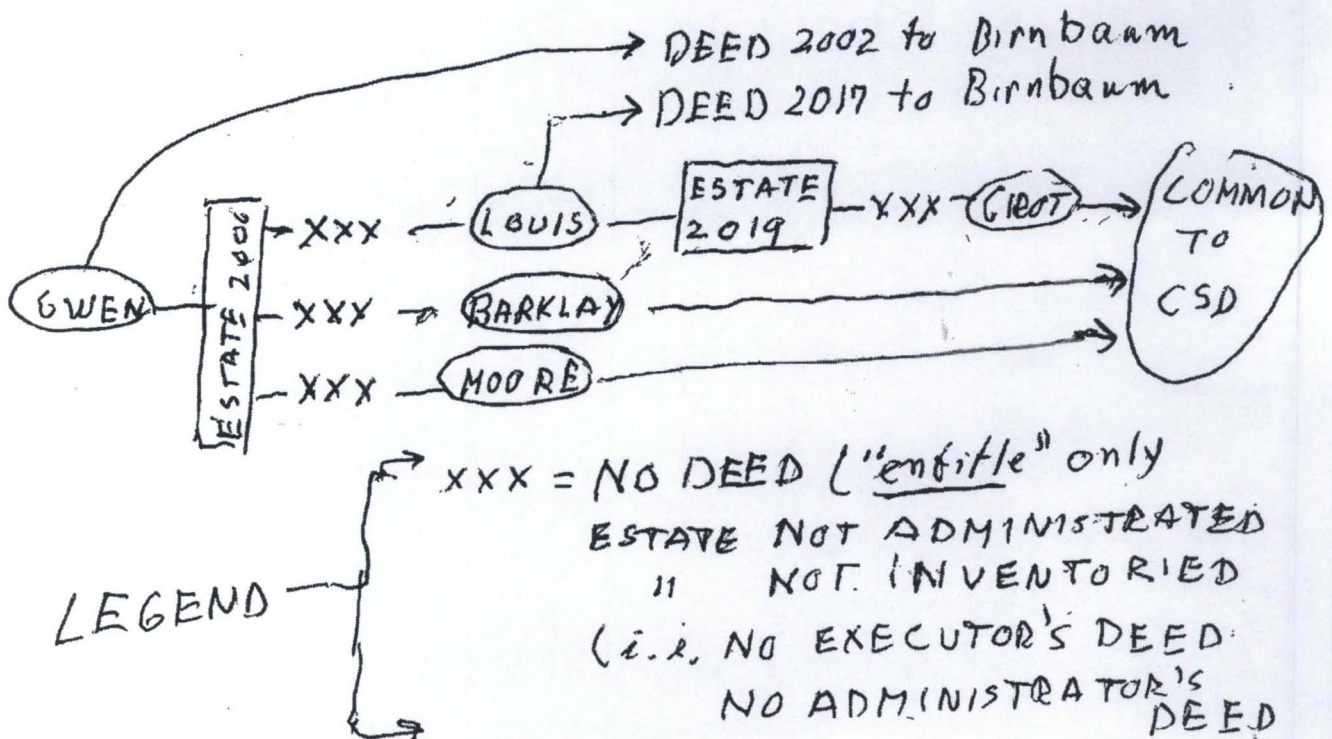 DEED 2002 to Birnbaum
DEED 2017 to Birnbaum
GWEN
ESTATE 2006
XXX
LOUIS
ESTATE
2019
XXX
XXX
BARKLAY
XXX
MOORE
COMMON
TO
CSD
LEGEND
XXX = NO DEED ("entitle" only
ESTATE NOT ADMINISTRATED
" NOT INVENTORIED
(i.e. NO EXECUTOR'S DEED
NO ADMINISTRATOR'S
DEED